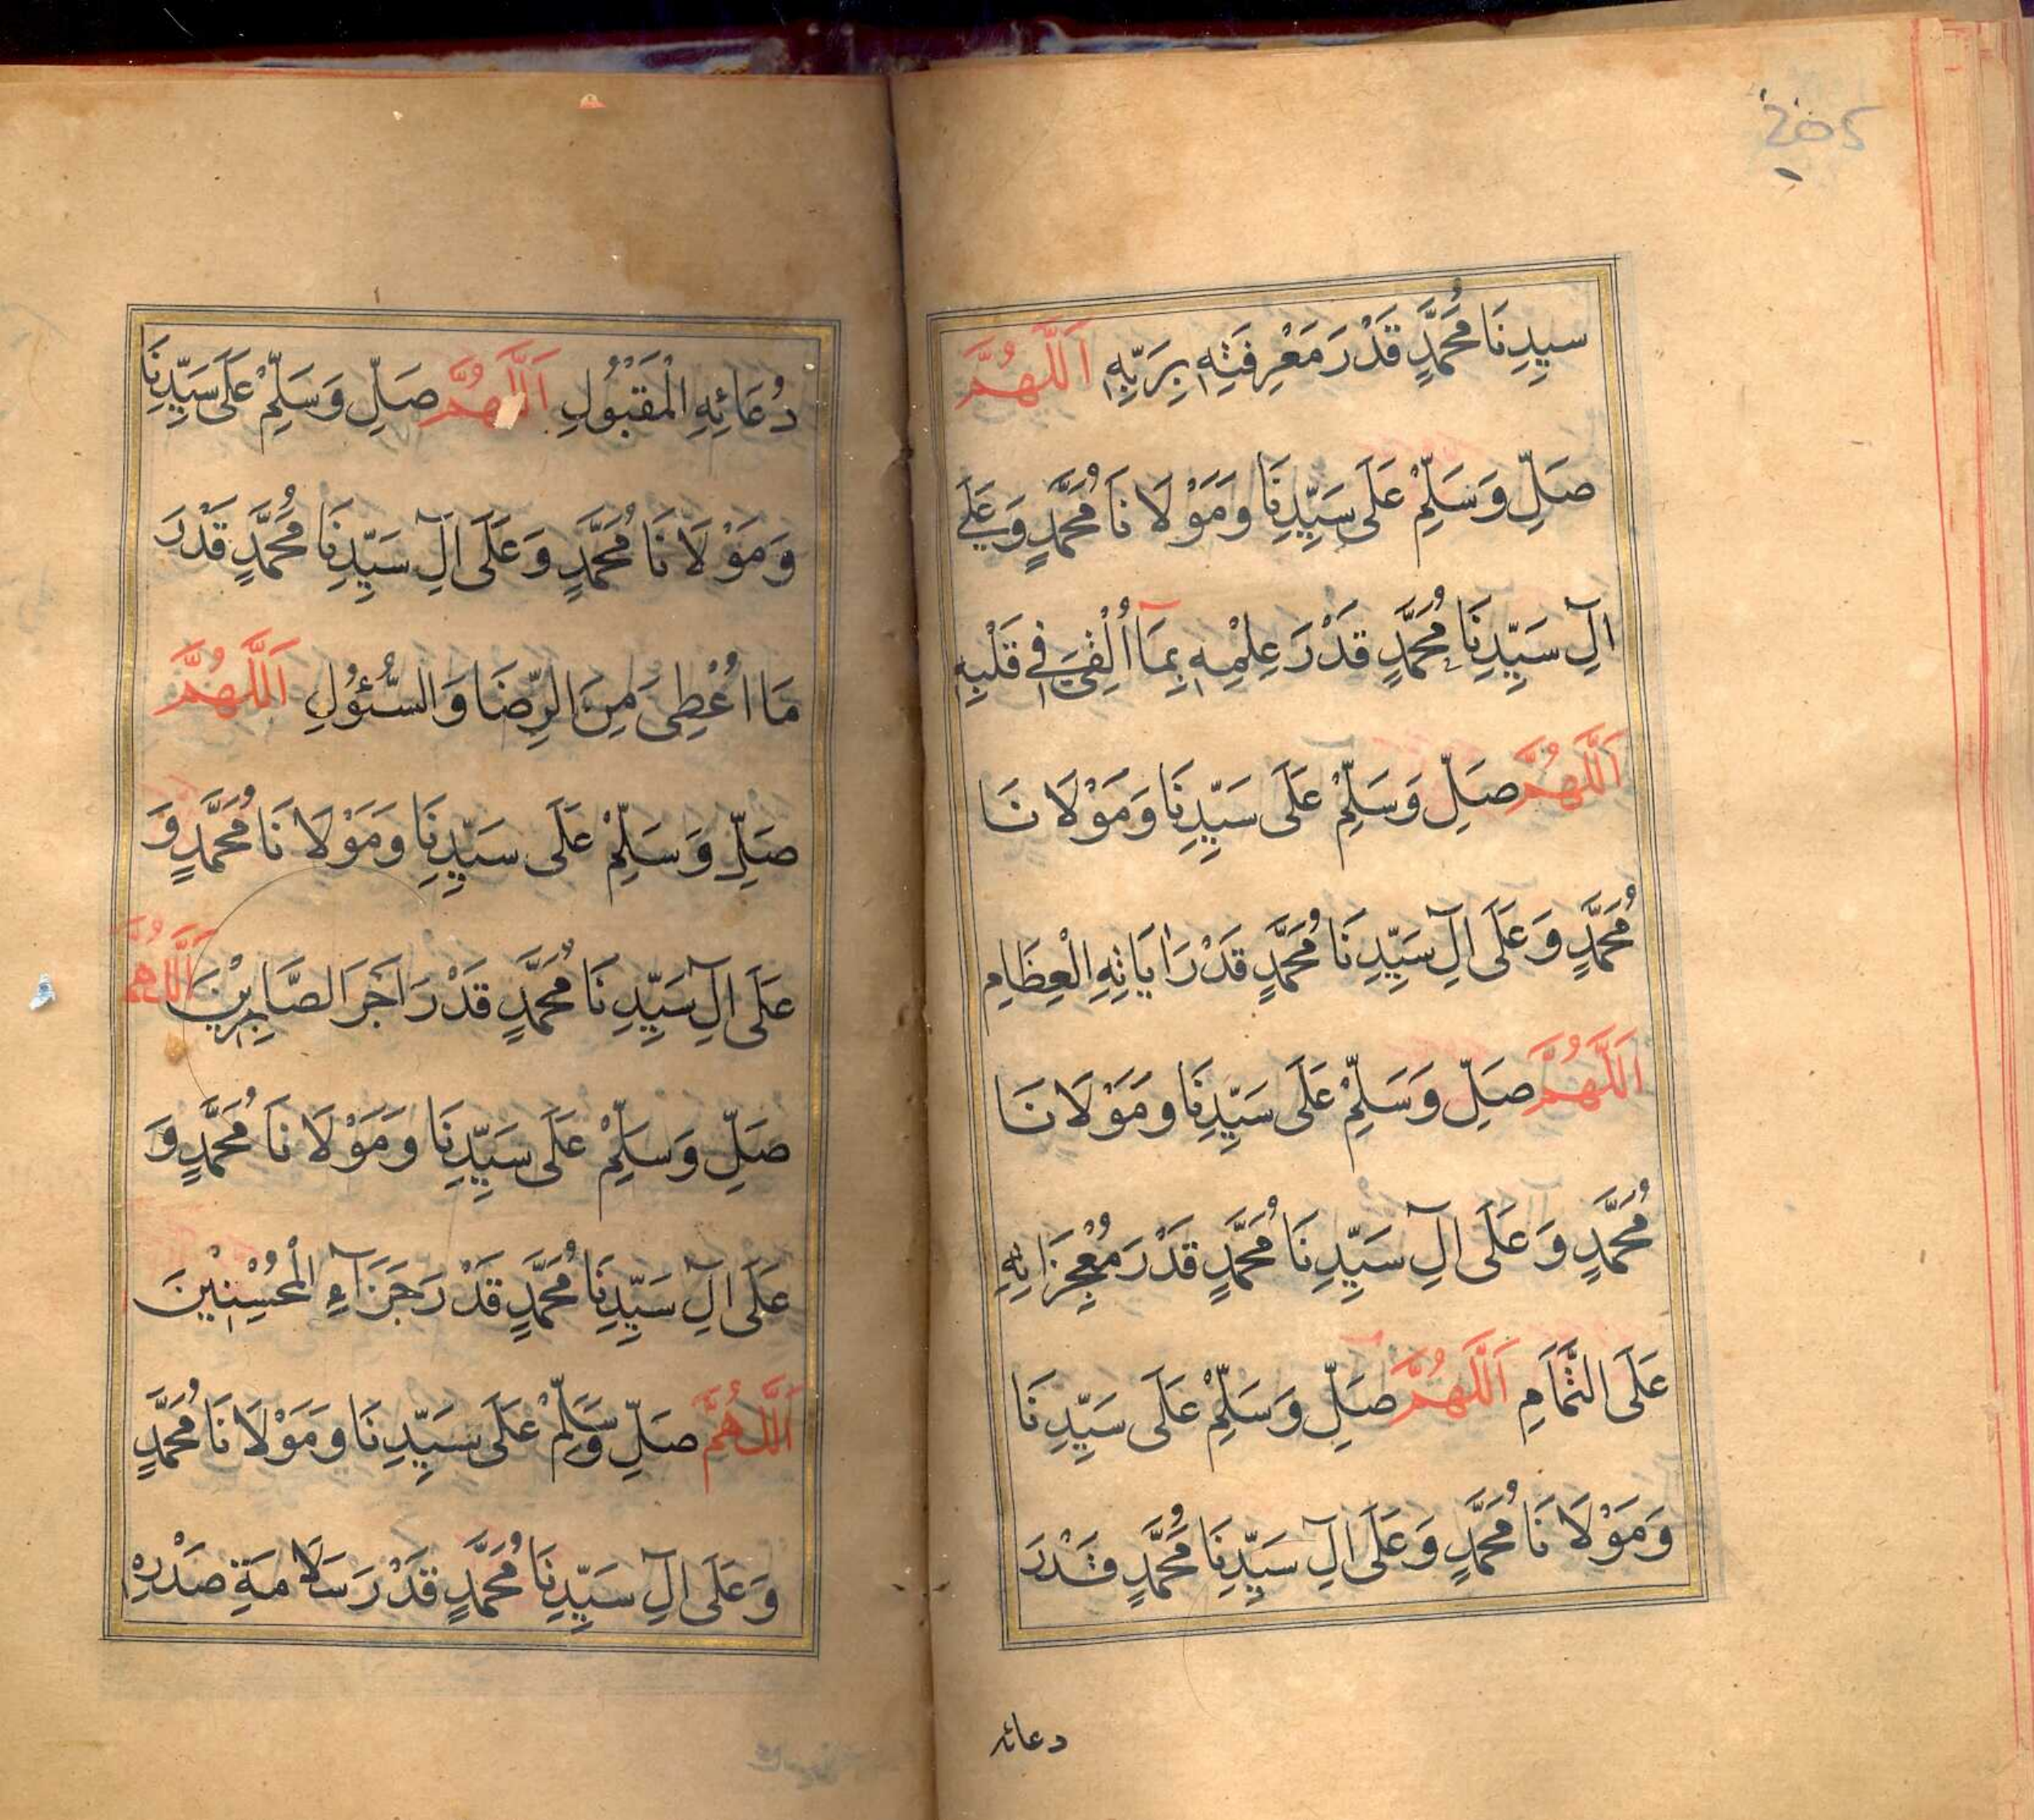 205
سيدِنَا مُحَمَّدٍ قَدْرَ مَعْرِفَتِهٖ بِرَبِّهٖ اَللّٰهُمَّ
صَلِّ وَسَلِّمْ عَلَى سَيِّدِنَا وَمَوْلَانَا مُحَمَّدٍ وَعَلَى
اٰلِ سَيِّدِنَا مُحَمَّدٍ قَدْرَ عِلْمِهٖ بِمَا اُلْقِیَ فِی قَلْبِهٖ
اَللّٰهُمَّ صَلِّ وَسَلِّمْ عَلَى سَيِّدِنَا وَمَوْلَانَا
مُحَمَّدٍ وَعَلَى اٰلِ سَيِّدِنَا مُحَمَّدٍ قَدْرَ اٰيَاتِهِ الْعِظَامِ
اَللّٰهُمَّ صَلِّ وَسَلِّمْ عَلَى سَيِّدِنَا وَمَوْلَانَا
مُحَمَّدٍ وَعَلَى اٰلِ سَيِّدِنَا مُحَمَّدٍ قَدْرَ مُعْجِزَاتِهِ
عَلَى التَّمَامِ اَللّٰهُمَّ صَلِّ وَسَلِّمْ عَلَى سَيِّدِنَا
وَمَوْلَانَا مُحَمَّدٍ وَعَلَى اٰلِ سَيِّدِنَا مُحَمَّدٍ قَدْرَ
دعائه
دُعَائِهِ الْمَقْبُوْلِ اَللّٰهُمَّ صَلِّ وَسَلِّمْ عَلَى سَيِّدِنَا
وَمَوْلَانَا مُحَمَّدٍ وَعَلَى اٰلِ سَيِّدِنَا مُحَمَّدٍ قَدْرَ
مَا اُعْطِیَ مِنَ الرِّضَا وَالسُّئُوْلِ اَللّٰهُمَّ
صَلِّ وَسَلِّمْ عَلَى سَيِّدِنَا وَمَوْلَانَا مُحَمَّدٍ وَ
عَلَى اٰلِ سَيِّدِنَا مُحَمَّدٍ قَدْرَ اَجْرَ الصَّابِرِيْنَ اَللّٰهُمَّ
صَلِّ وَسَلِّمْ عَلَى سَيِّدِنَا وَمَوْلَانَا مُحَمَّدٍ وَ
عَلَى اٰلِ سَيِّدِنَا مُحَمَّدٍ قَدْرَ جَزَآءِ الْمُحْسِنِيْنَ
اَللّٰهُمَّ صَلِّ وَسَلِّمْ عَلَى سَيِّدِنَا وَمَوْلَانَا مُحَمَّدٍ
وَعَلَى اٰلِ سَيِّدِنَا مُحَمَّدٍ قَدْرَ سَلَامَةِ صَدْرِهٖ